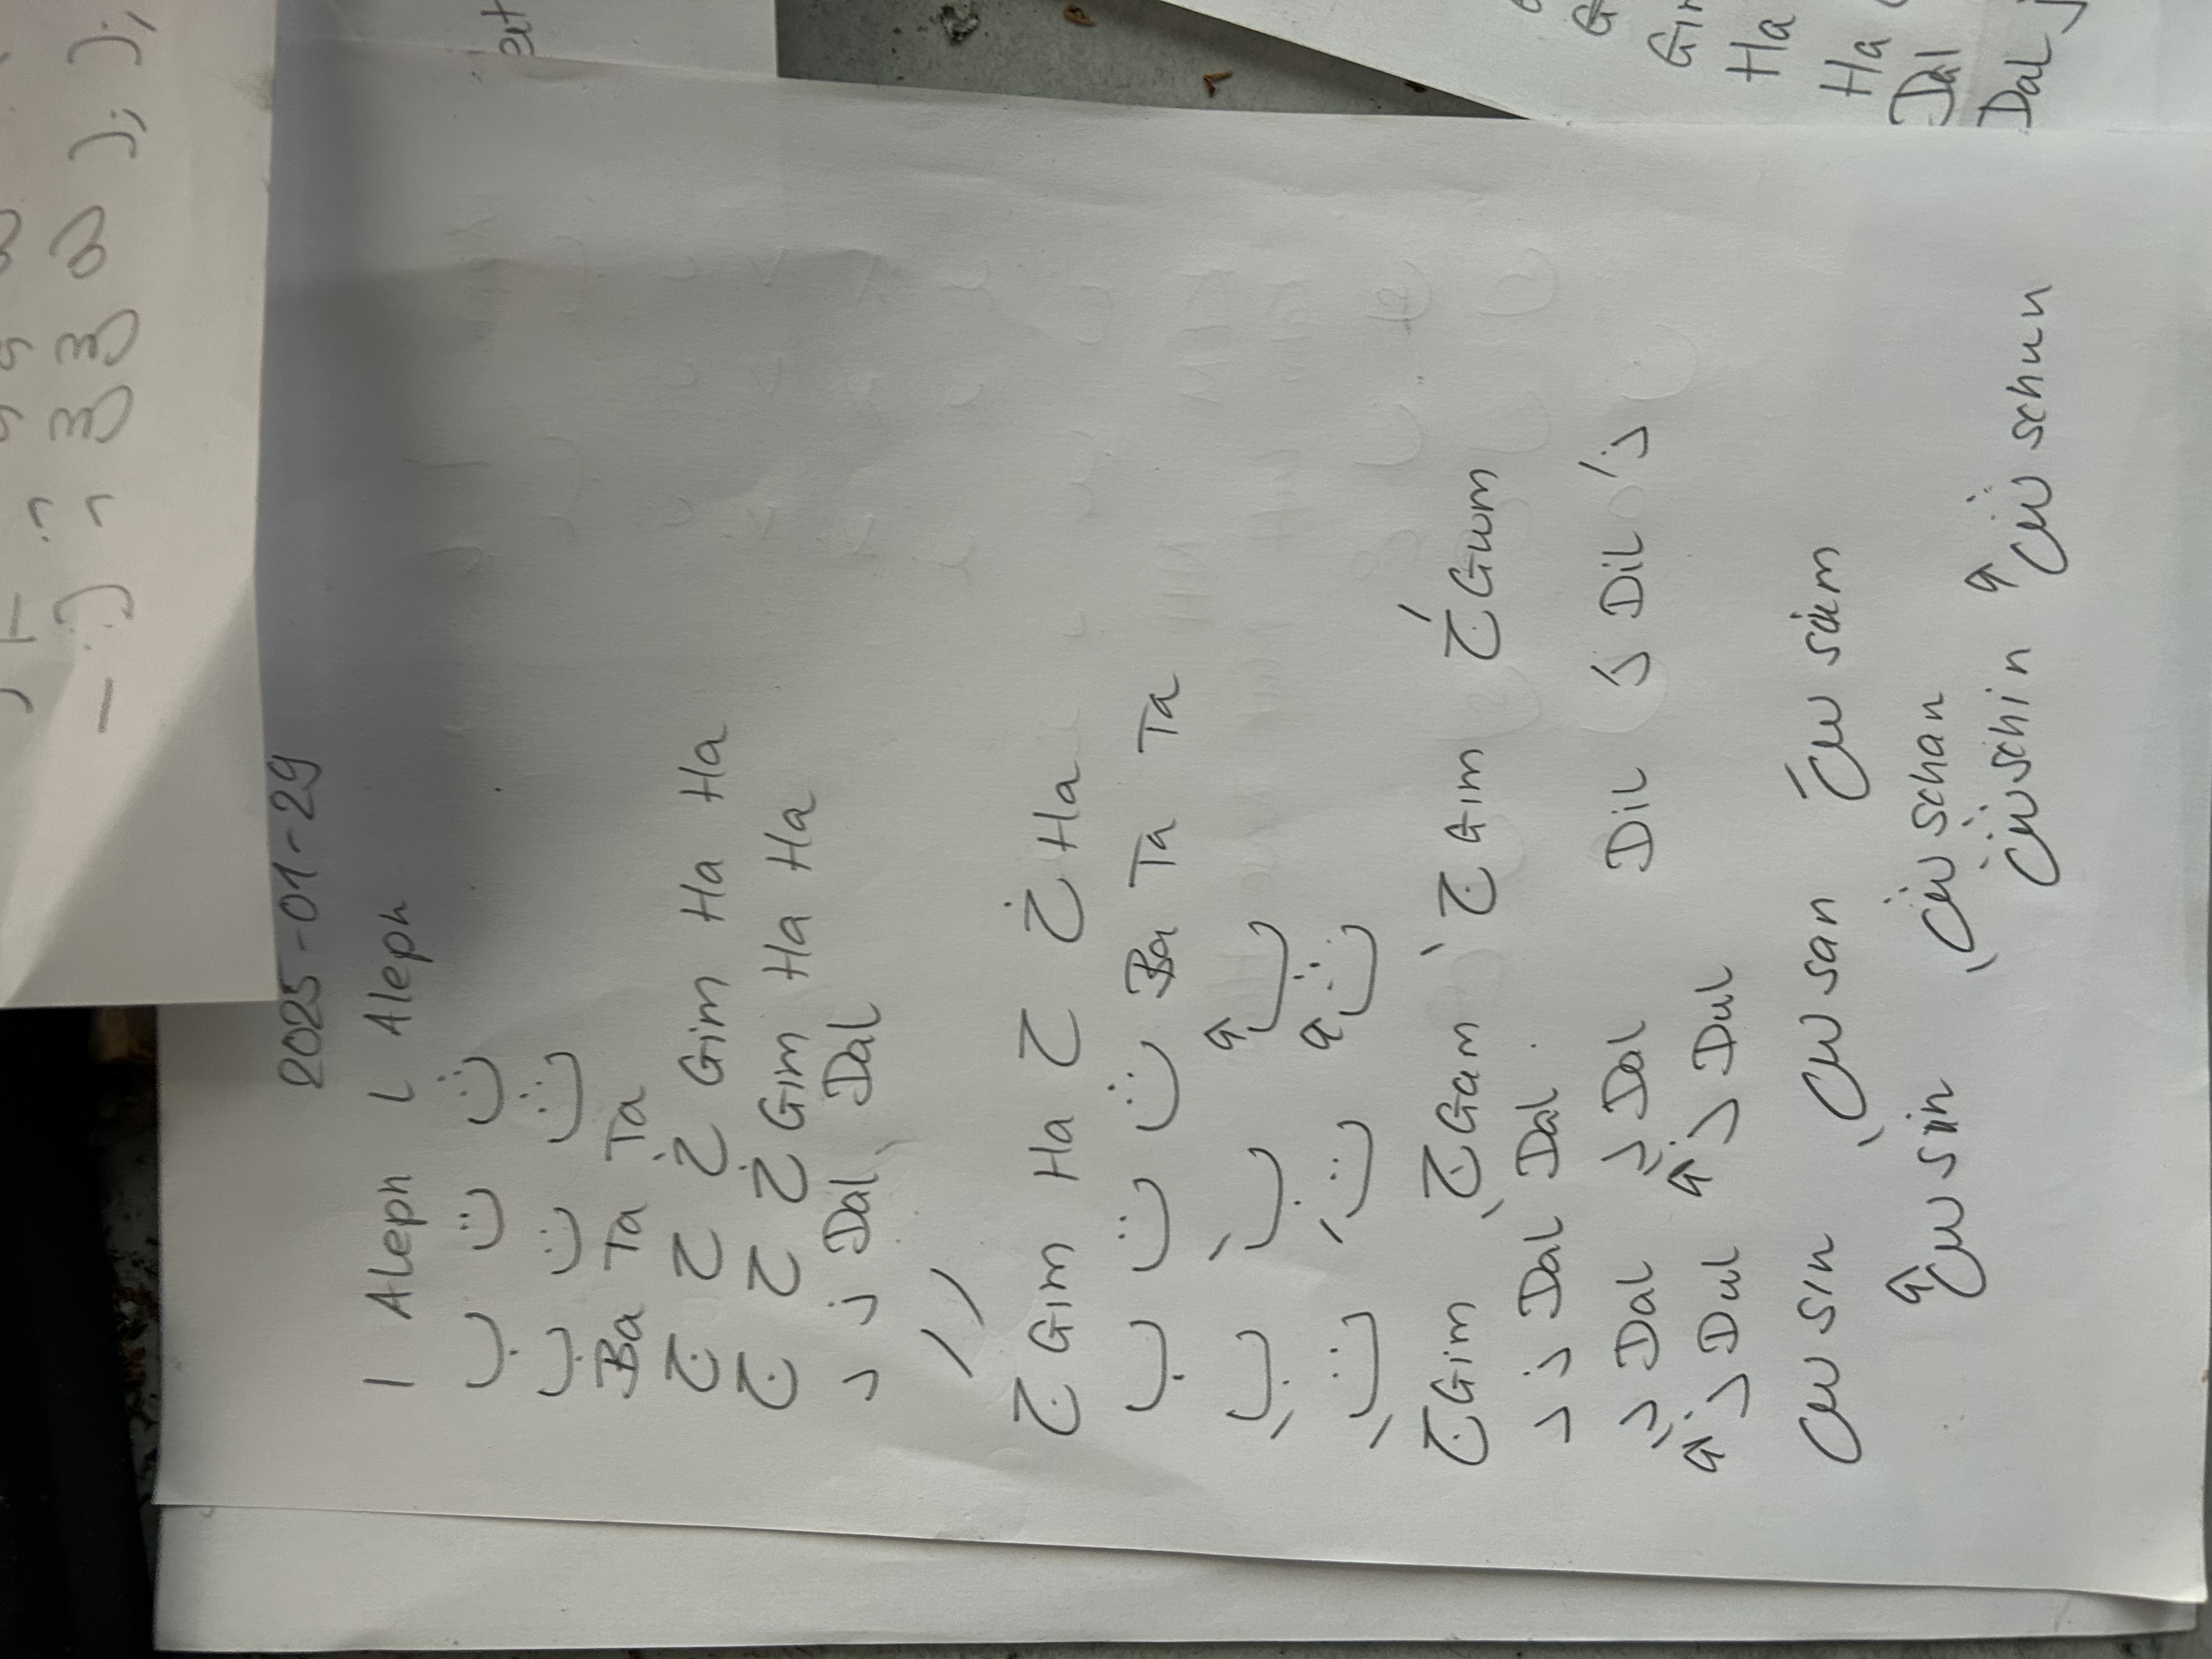 2025-01-29
ا Aleph ا Aleph
ب ت ث
ب ت ث
Ba Ta Ta
ج ح خ Gim Ha Ha
ج ح خ Gim Ha Ha
د ذ Dal Dal
ر ر
ج Gim Ha ح خ Ha
ب ت ث Ba Ta Ta
بِ بَ بُ
تِ تَ ثُ
ج Gim جِ Gam جَ Gim جَ Gum
د ذ Dal Dal
دِ Dal دِ Dal Dil ذَ Dil ذَ
ذُ Dul ذُ Dul
س sin سِ san سَ
سُ شِ schan
ش schin شُ schun
Ha
Ha
Dal
Dal